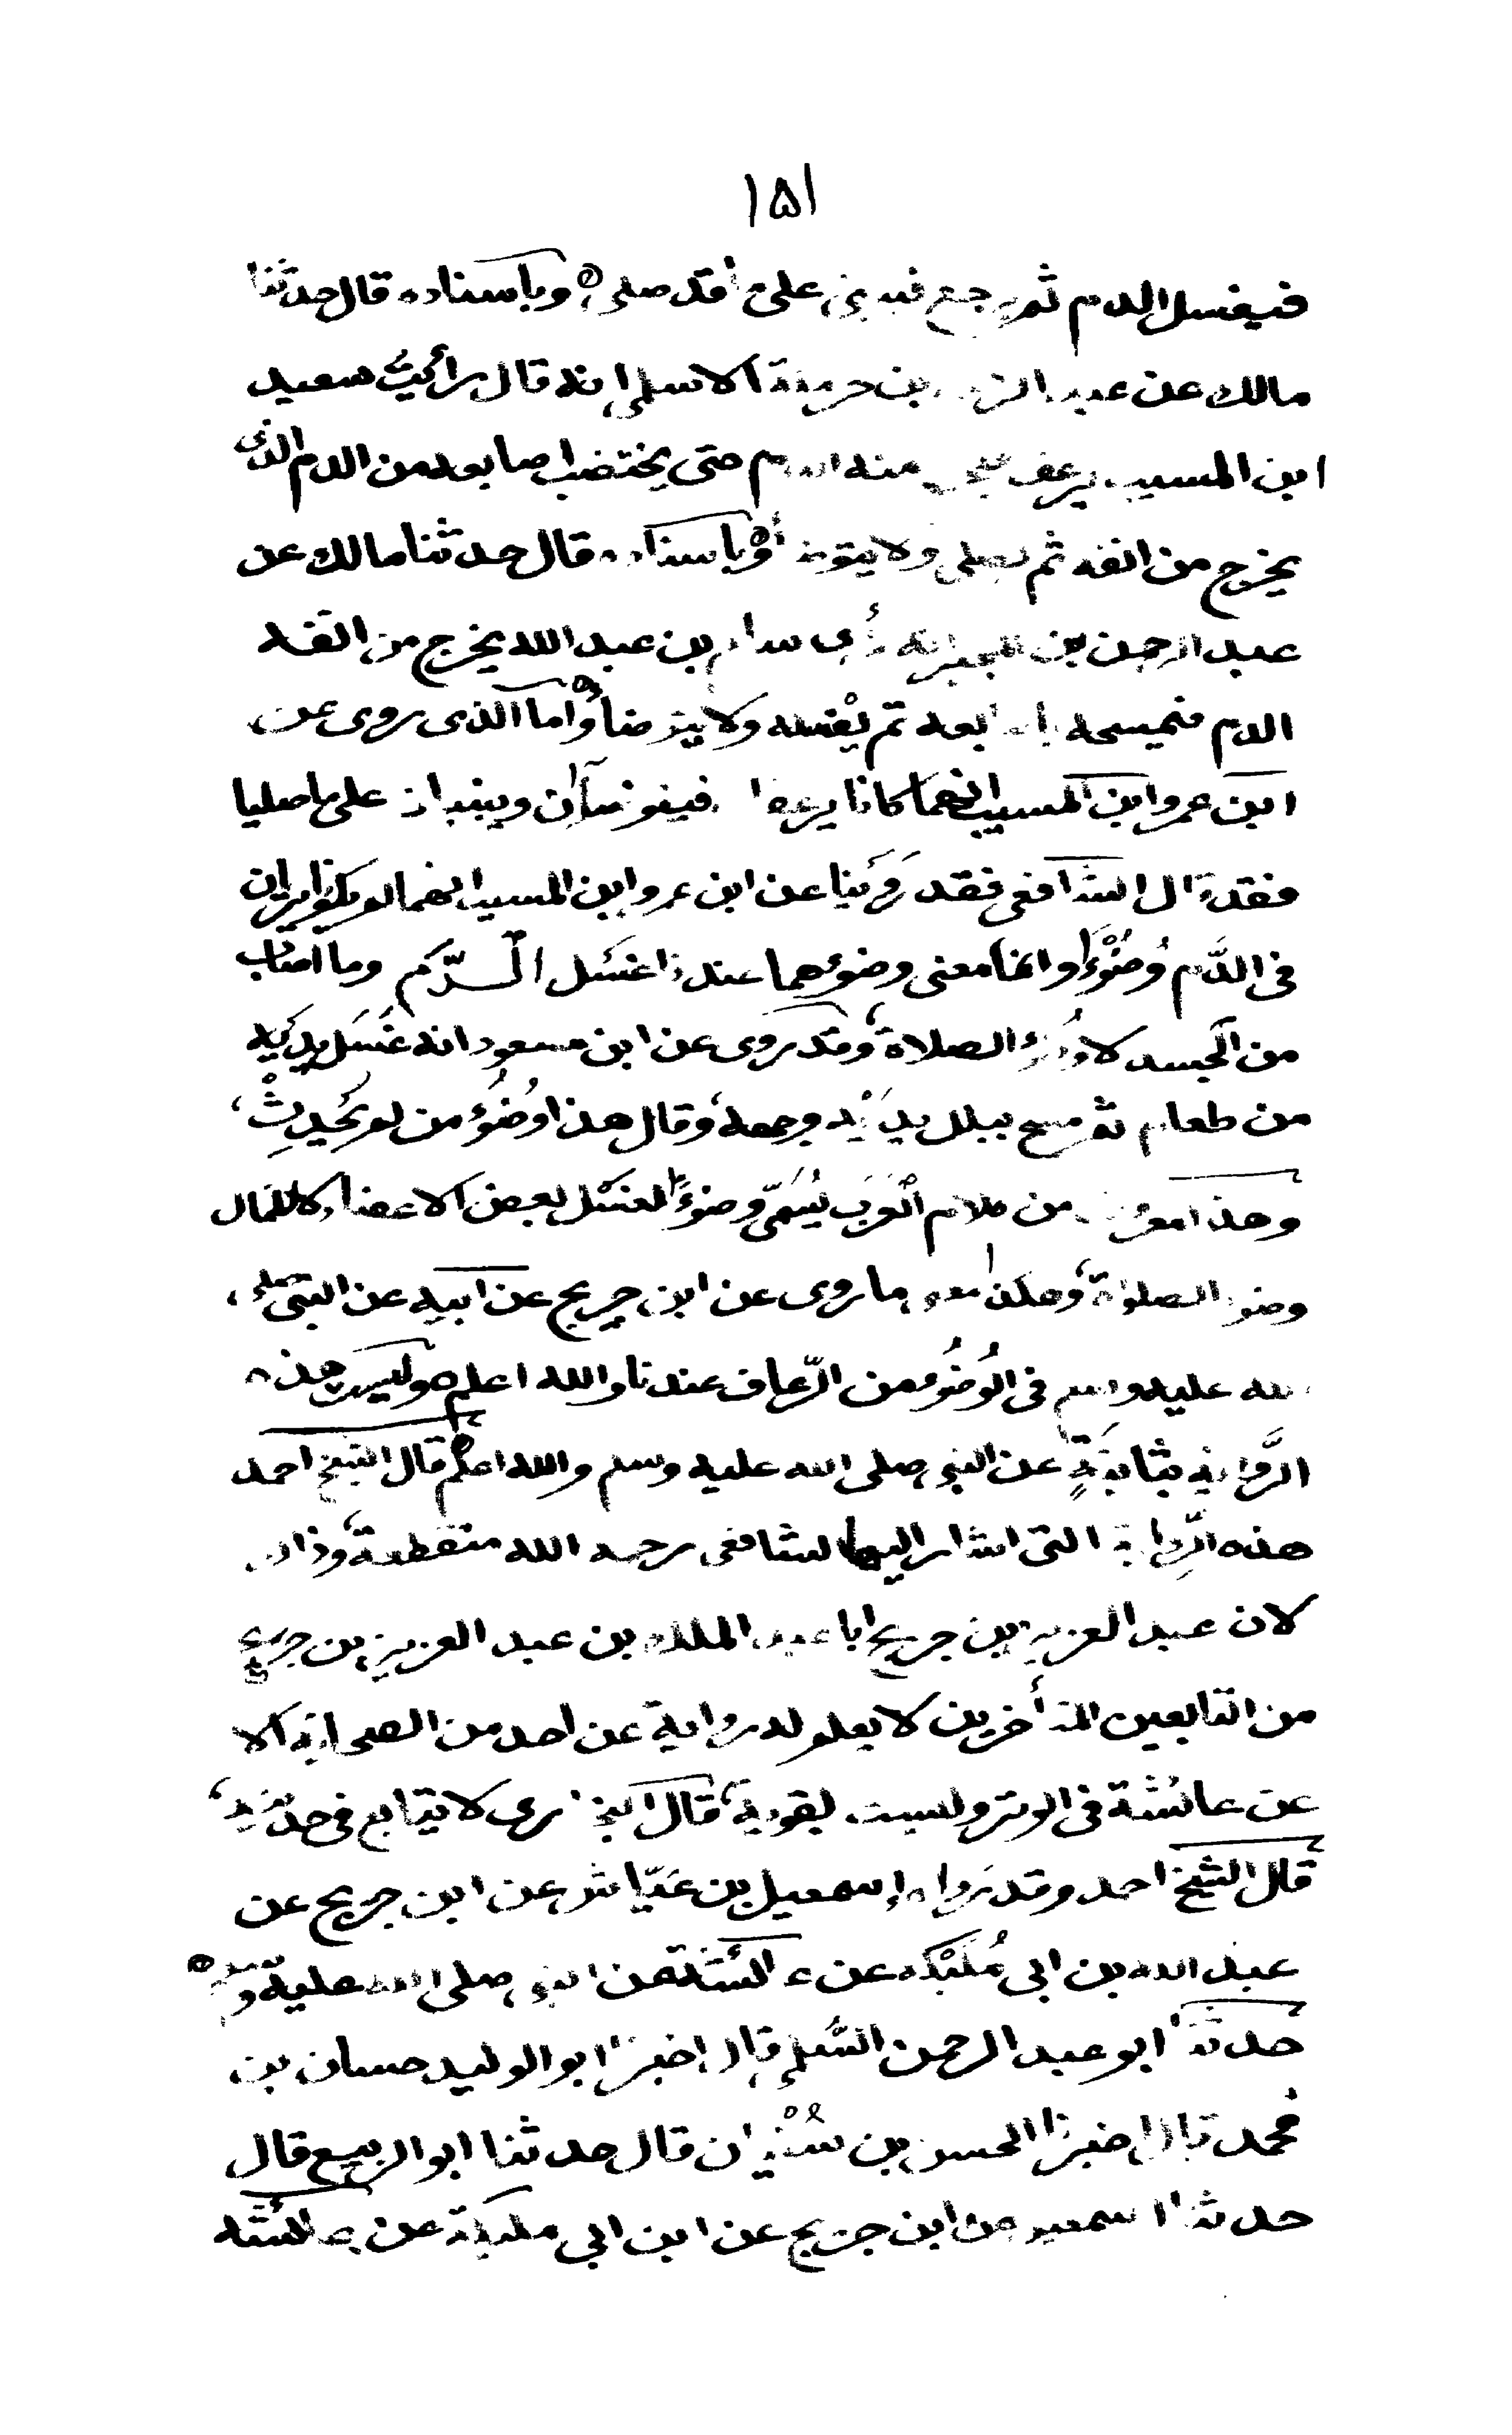 ١٥١
فيغسل الدم ثم يرجع فيبني على ما قد صلى ه وباسناده قال حدثنا
مالك عن عبد الرحمن بن حرملة الاسلمي انه قال رأيتُ سعيد
ابن المسيب يرعف فيخرج منه الدم حتى يختضب اصابعه من الدم الذى
يخرج من انفه ثم يصلى ولا يتوضأ ه وباسناده قال حدثنا مالك عن
عبد الرحمن بن المجبر انه رأى سالم بن عبد الله يخرج من انفه
الدم فيمسحه باصابعه ثم يفتله ولا يتوضأ ه واما الذى روى عن
ابن عمر وابن المسيب انهما كانا يرعفان فيتوضآن ويبنيان على ما صليا
فقد قال الشافعى فقد روينا عن ابن عمر وابن المسيب انهما لم يكونا يريان
فى الدَّم وُضُوْءًا وانما معنى وضوءهما عندنا غسَل الدّم وما اصاب
من الجسد لا وُضوء الصلاة، وقد روى عن ابن مسعود انه غسَل يدَيه
من طعام ثم مسح ببلل يديه وجهه، وقال هذا وُضُوء من لم يُحْدِثْ،
وهذا معروف من كلام الْعَرَب يُسَمّى وضوءًا لغسْل بعض الاعضاء لا لكمال
وضوء الصلوة، وهكذا معنى ما روى عن ابن جريج عن ابيه عن النبى صلى
الله عليه وسلم فى الوُضُوء من الرّعاف عندنا والله اعلم وليست هذه
الرَّواية بثابتةٍ عن النبى صلى الله عليه وسلم والله اعلم ه قال الشيخ احمد
هذه الرِّواية التى اشار اليها الشافعى رحمه الله منقطعة، وذلك
لان عبد العزيز بن جريج ابا عبد الملك بن عبد العزيز بن جريج
من التابعين المتأخرين لا يعلم له رواية عن احد من الصحابة الا
عن عائشة فى الوتر وليست بقوية، قال البخارى لا يتابع فى حديثه،
قال الشيخ احمد وقد رَواه إسمعيل بن عَيّاش عن ابن جريج عن
عبد الله بن ابى مُلَيْكه عن عائشة عن النبى صلى الله عليه وسلم ه
حدثنا ابو عبد الرحمن السُّلمي قال اخبرنا ابو الوليد حسان بن
محمد قال اخبرنا الحسن بن سُفْيان قال حدثنا ابو الربيع قال
حدثنا اسمعيل عن ابن جريج عن ابن ابى مليكة عن عائشه